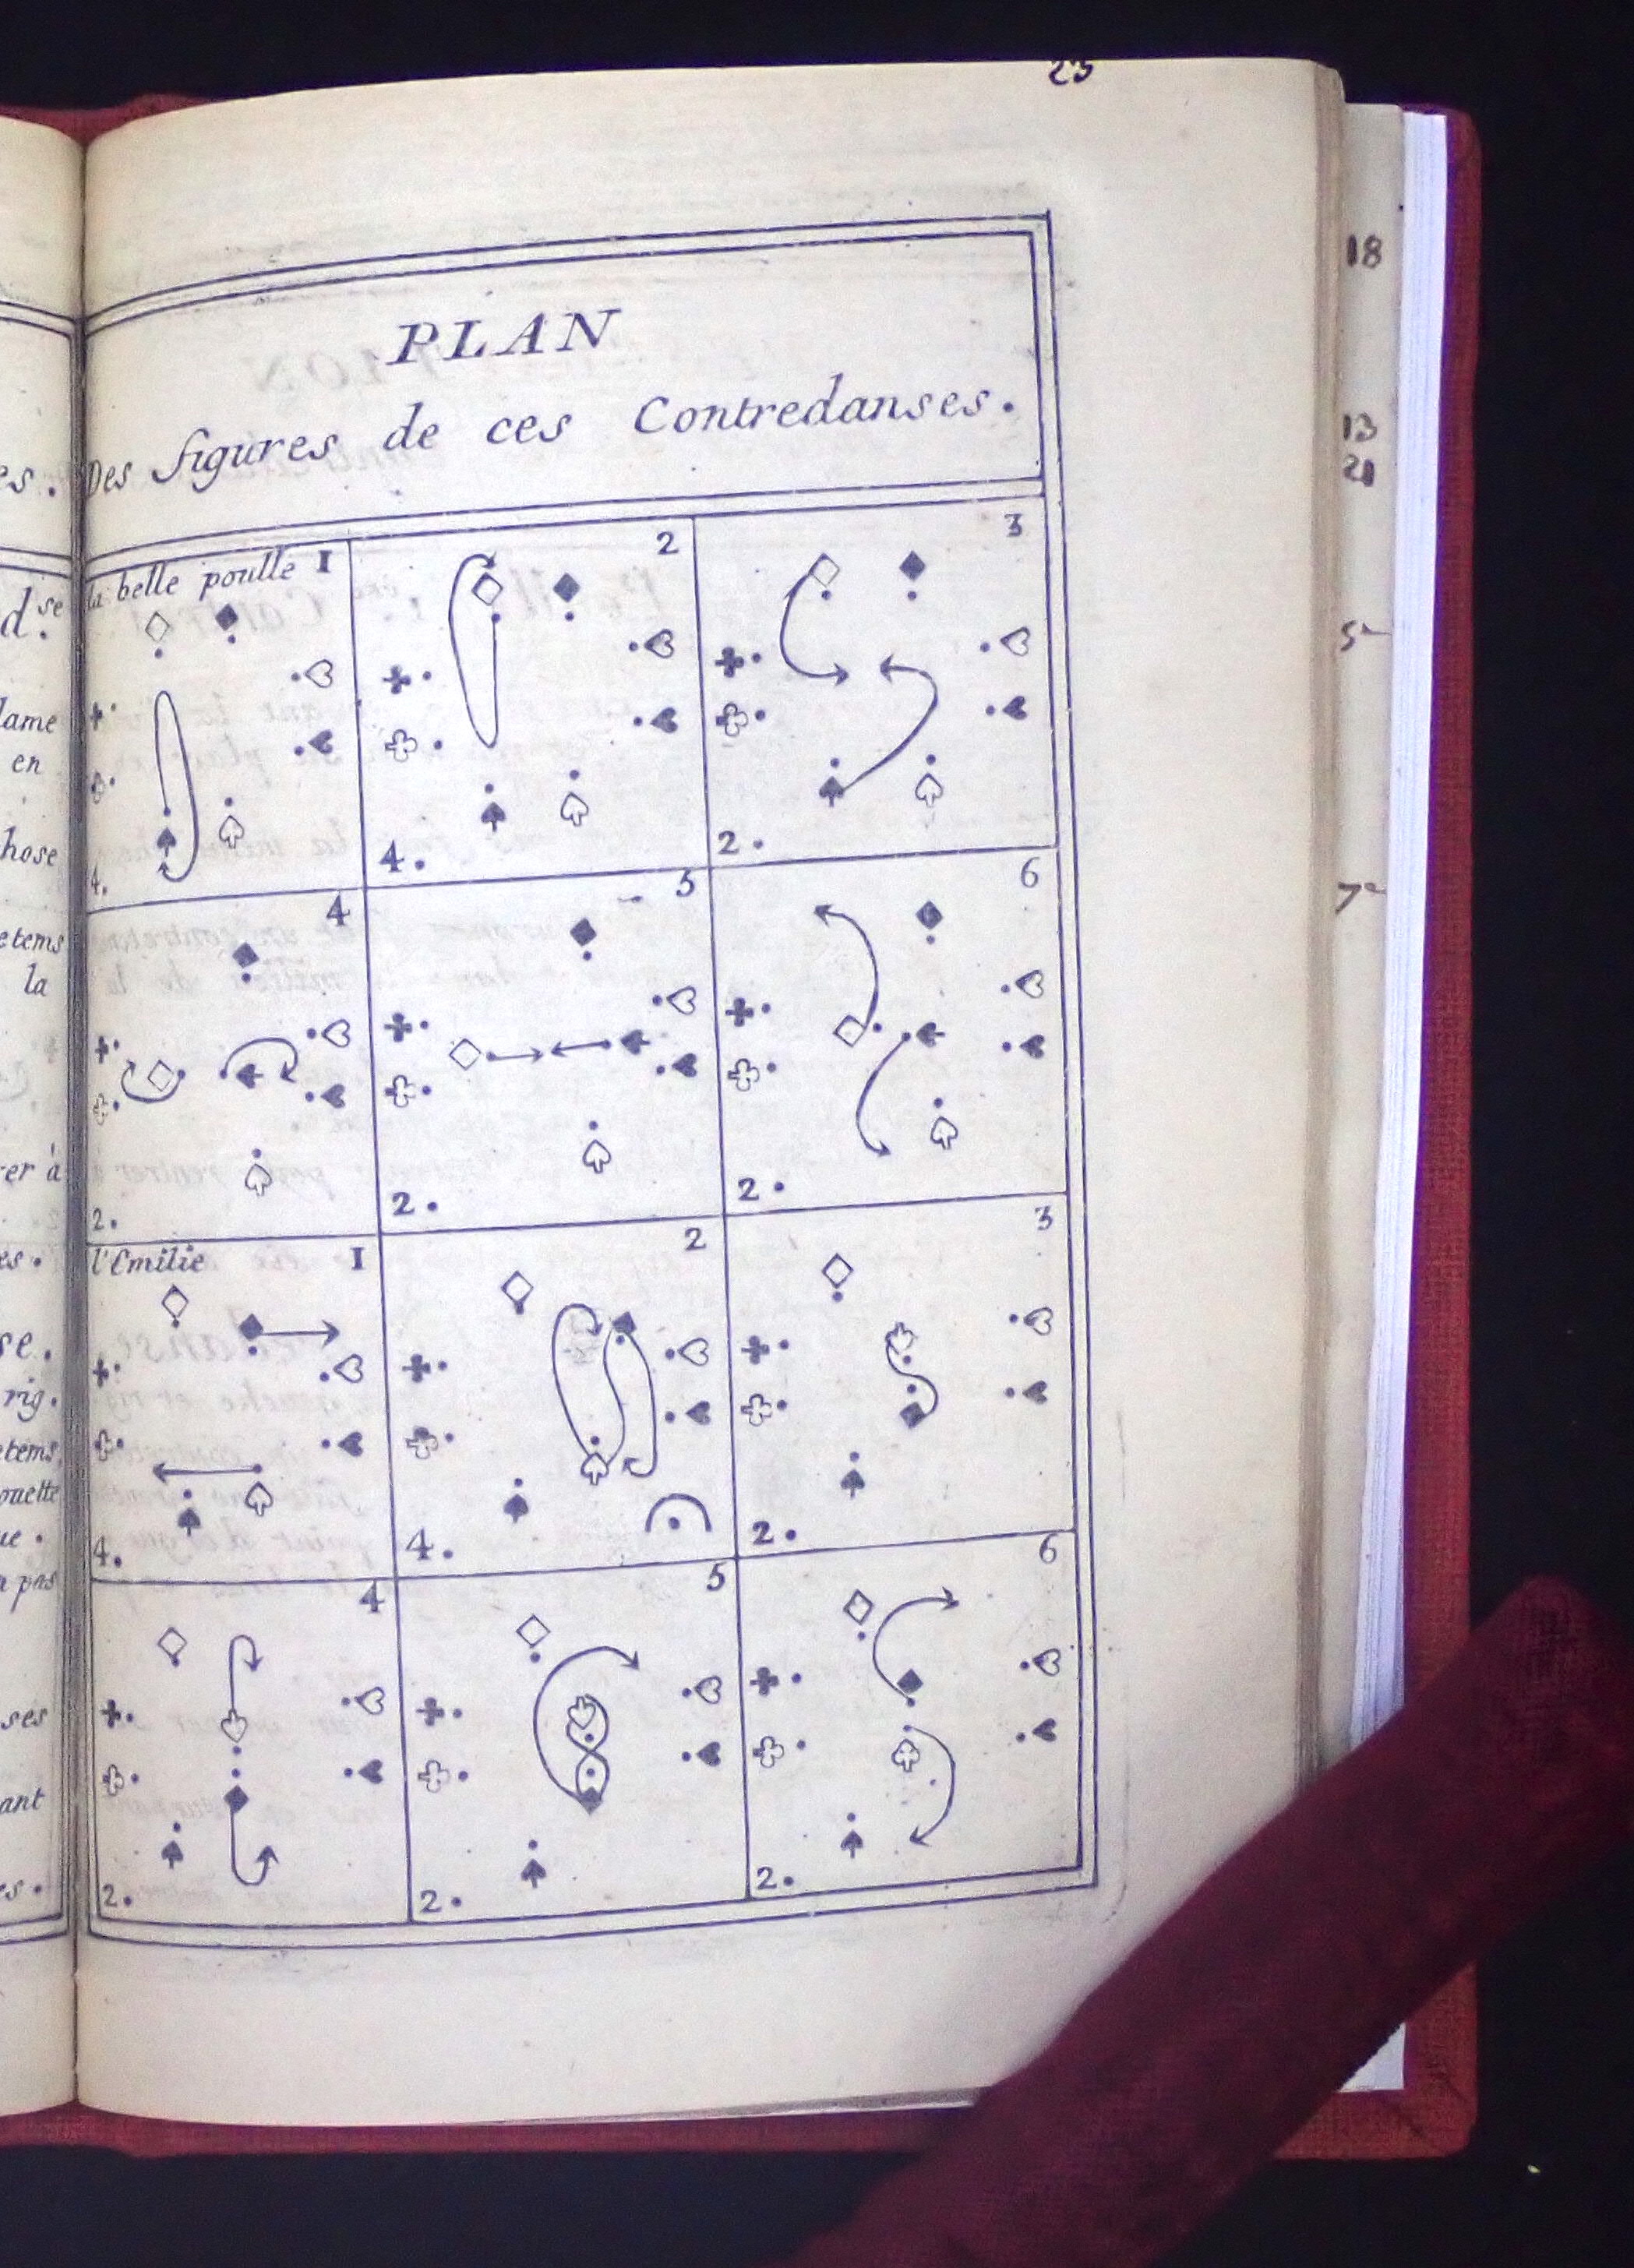 23
PLAN
Des figures de ces Contredanses.
la belle poulle 1
4.
2
4.
3
2.
4
2.
5
2.
6
2.
l'Emilie 1
4.
2
4.
3
2.
4
2.
5
2.
6
2.
es.
d.se
lame
en
hose
etems
la
rer à
es.
se.
rig.
etems.
ouette
ue.
a pas
ses
ant
es.
18
13
21